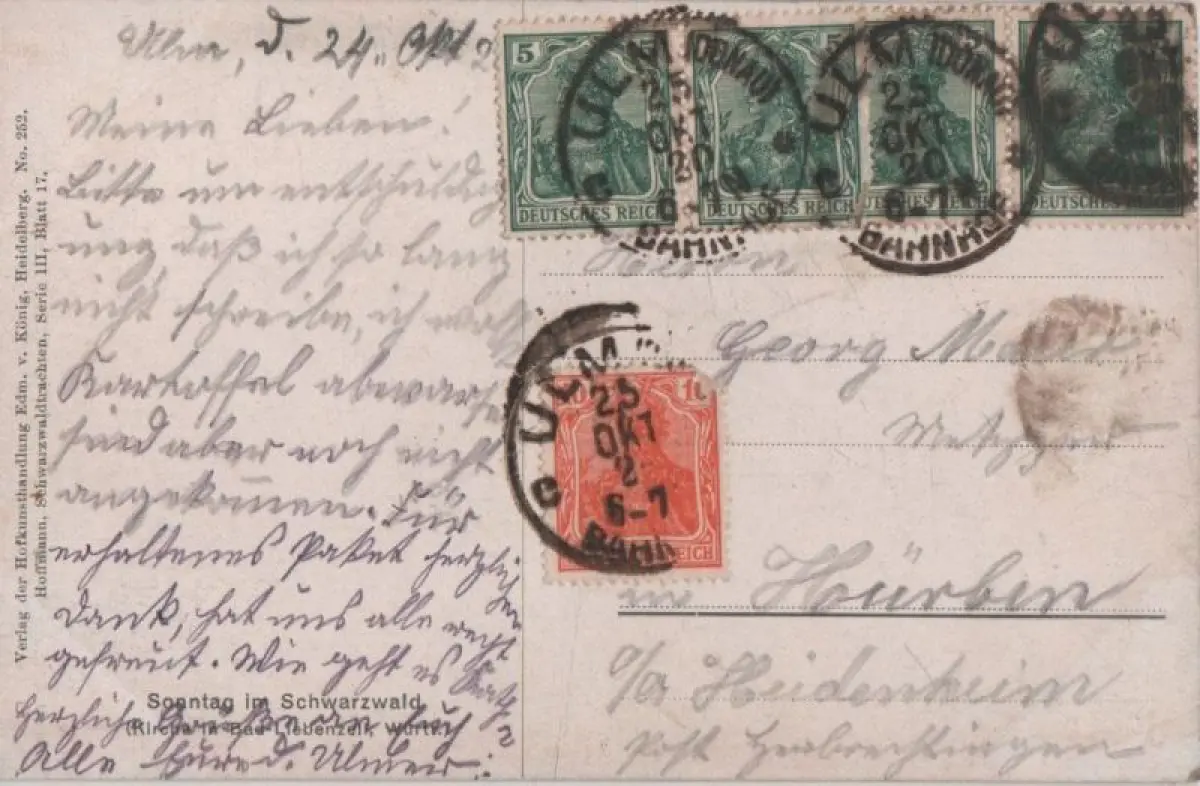 Ulm, d. 24. Okt 2
Meine Lieben!
Bitte um entschuldig
ung, daß ich so lang
nicht schreibe, ich wollt
Kartoffel abwarten
sind aber noch nicht
angekommen. Für
erhaltenes Paket herzlichen
Dank, hat uns alle recht
gefreut. Wie geht es
Herzliche Grüße an Euch
Alle Eure d. Ulmer.
Sonntag im Schwarzwald
(Kirche in Bad Liebenzell, Württ.)
Verlag der Hofkunsthandlung Edm. v. König, Heidelberg. No. 252.
Hoffmann, Schwarzwaldtrachten, Serie III, Blatt 17.
5 5
DEUTSCHES REICH
DEUTSCHES REICH
DEUTSCHES REICH
DEUTSCHES
ULM (DONAU)
25 OKT 20
BAHNHOF
ULM (DONAU)
25
OKT
20
6-7N
BAHNHOF
Herrn
Georg
Metzger
ULM
25
OKT
2
6-7
BAHN
10
REICH
in Hürben
o/a Heidenheim
Post Herbrechtingen